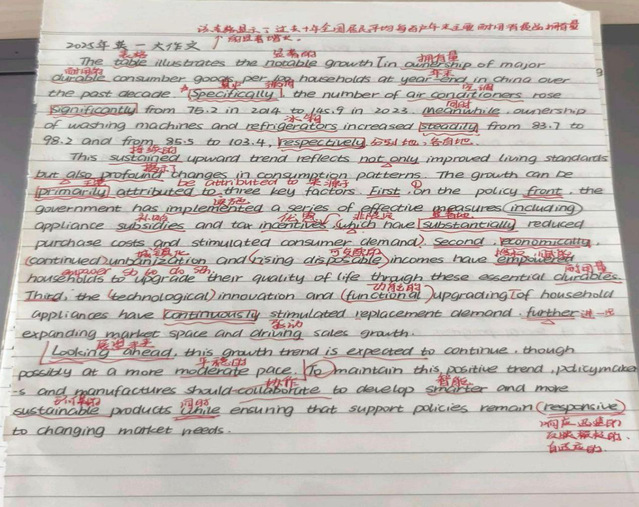 该表格显示了过去十年全国居民平均每百户年末主要耐用消费品拥有量
个的显著增长。
2025年英一大作文
表格 显著的 拥有量
The table illustrates the notable growth in ownership of major
耐用的 年末
durable consumer goods per 100 households at year-end in China over
空调
the past decade. Specifically, the number of air conditioners rose
同时
significantly from 75.2 in 2014 to 145.9 in 2023. Meanwhile, ownership
冰箱
of washing machines and refrigerators increased steadily from 83.7 to
98.2 and from 85.5 to 103.4, respectively. 分别地、各自地.
持续的
This sustained upward trend reflects not only improved living standards
but also profound changes in consumption patterns. The growth can be
主要 be attributed to 来源于 ①
primarily attributed to three key factors. First, on the policy front, the
实施
government has implemented a series of effective measures (including
补贴
appliance subsidies and tax incentives, which have substantially reduced
purchase costs and stimulated consumer demand). Second, economically,
城镇化 可支配的
(continued) urbanization and (rising disposable) incomes have empowered
empower sb to do sth. 耐用品
households to upgrade their quality of life through these essential durables.
功能的
Third, the (technological) innovation and (functional) upgrading of household
appliances have continuously stimulated replacement demand, further 进一步
expanding market space and driving sales growth.
Looking ahead, this growth trend is expected to continue, though
possibly at a more moderate pace. To maintain this positive trend, policymaker
协作 智能
-s and manufactures should collaborate to develop smarter and more
可持续的 同时
sustainable products while ensuring that support policies remain (responsive)
to changing market needs.
响应迅速的
反应积极的
自适应的.